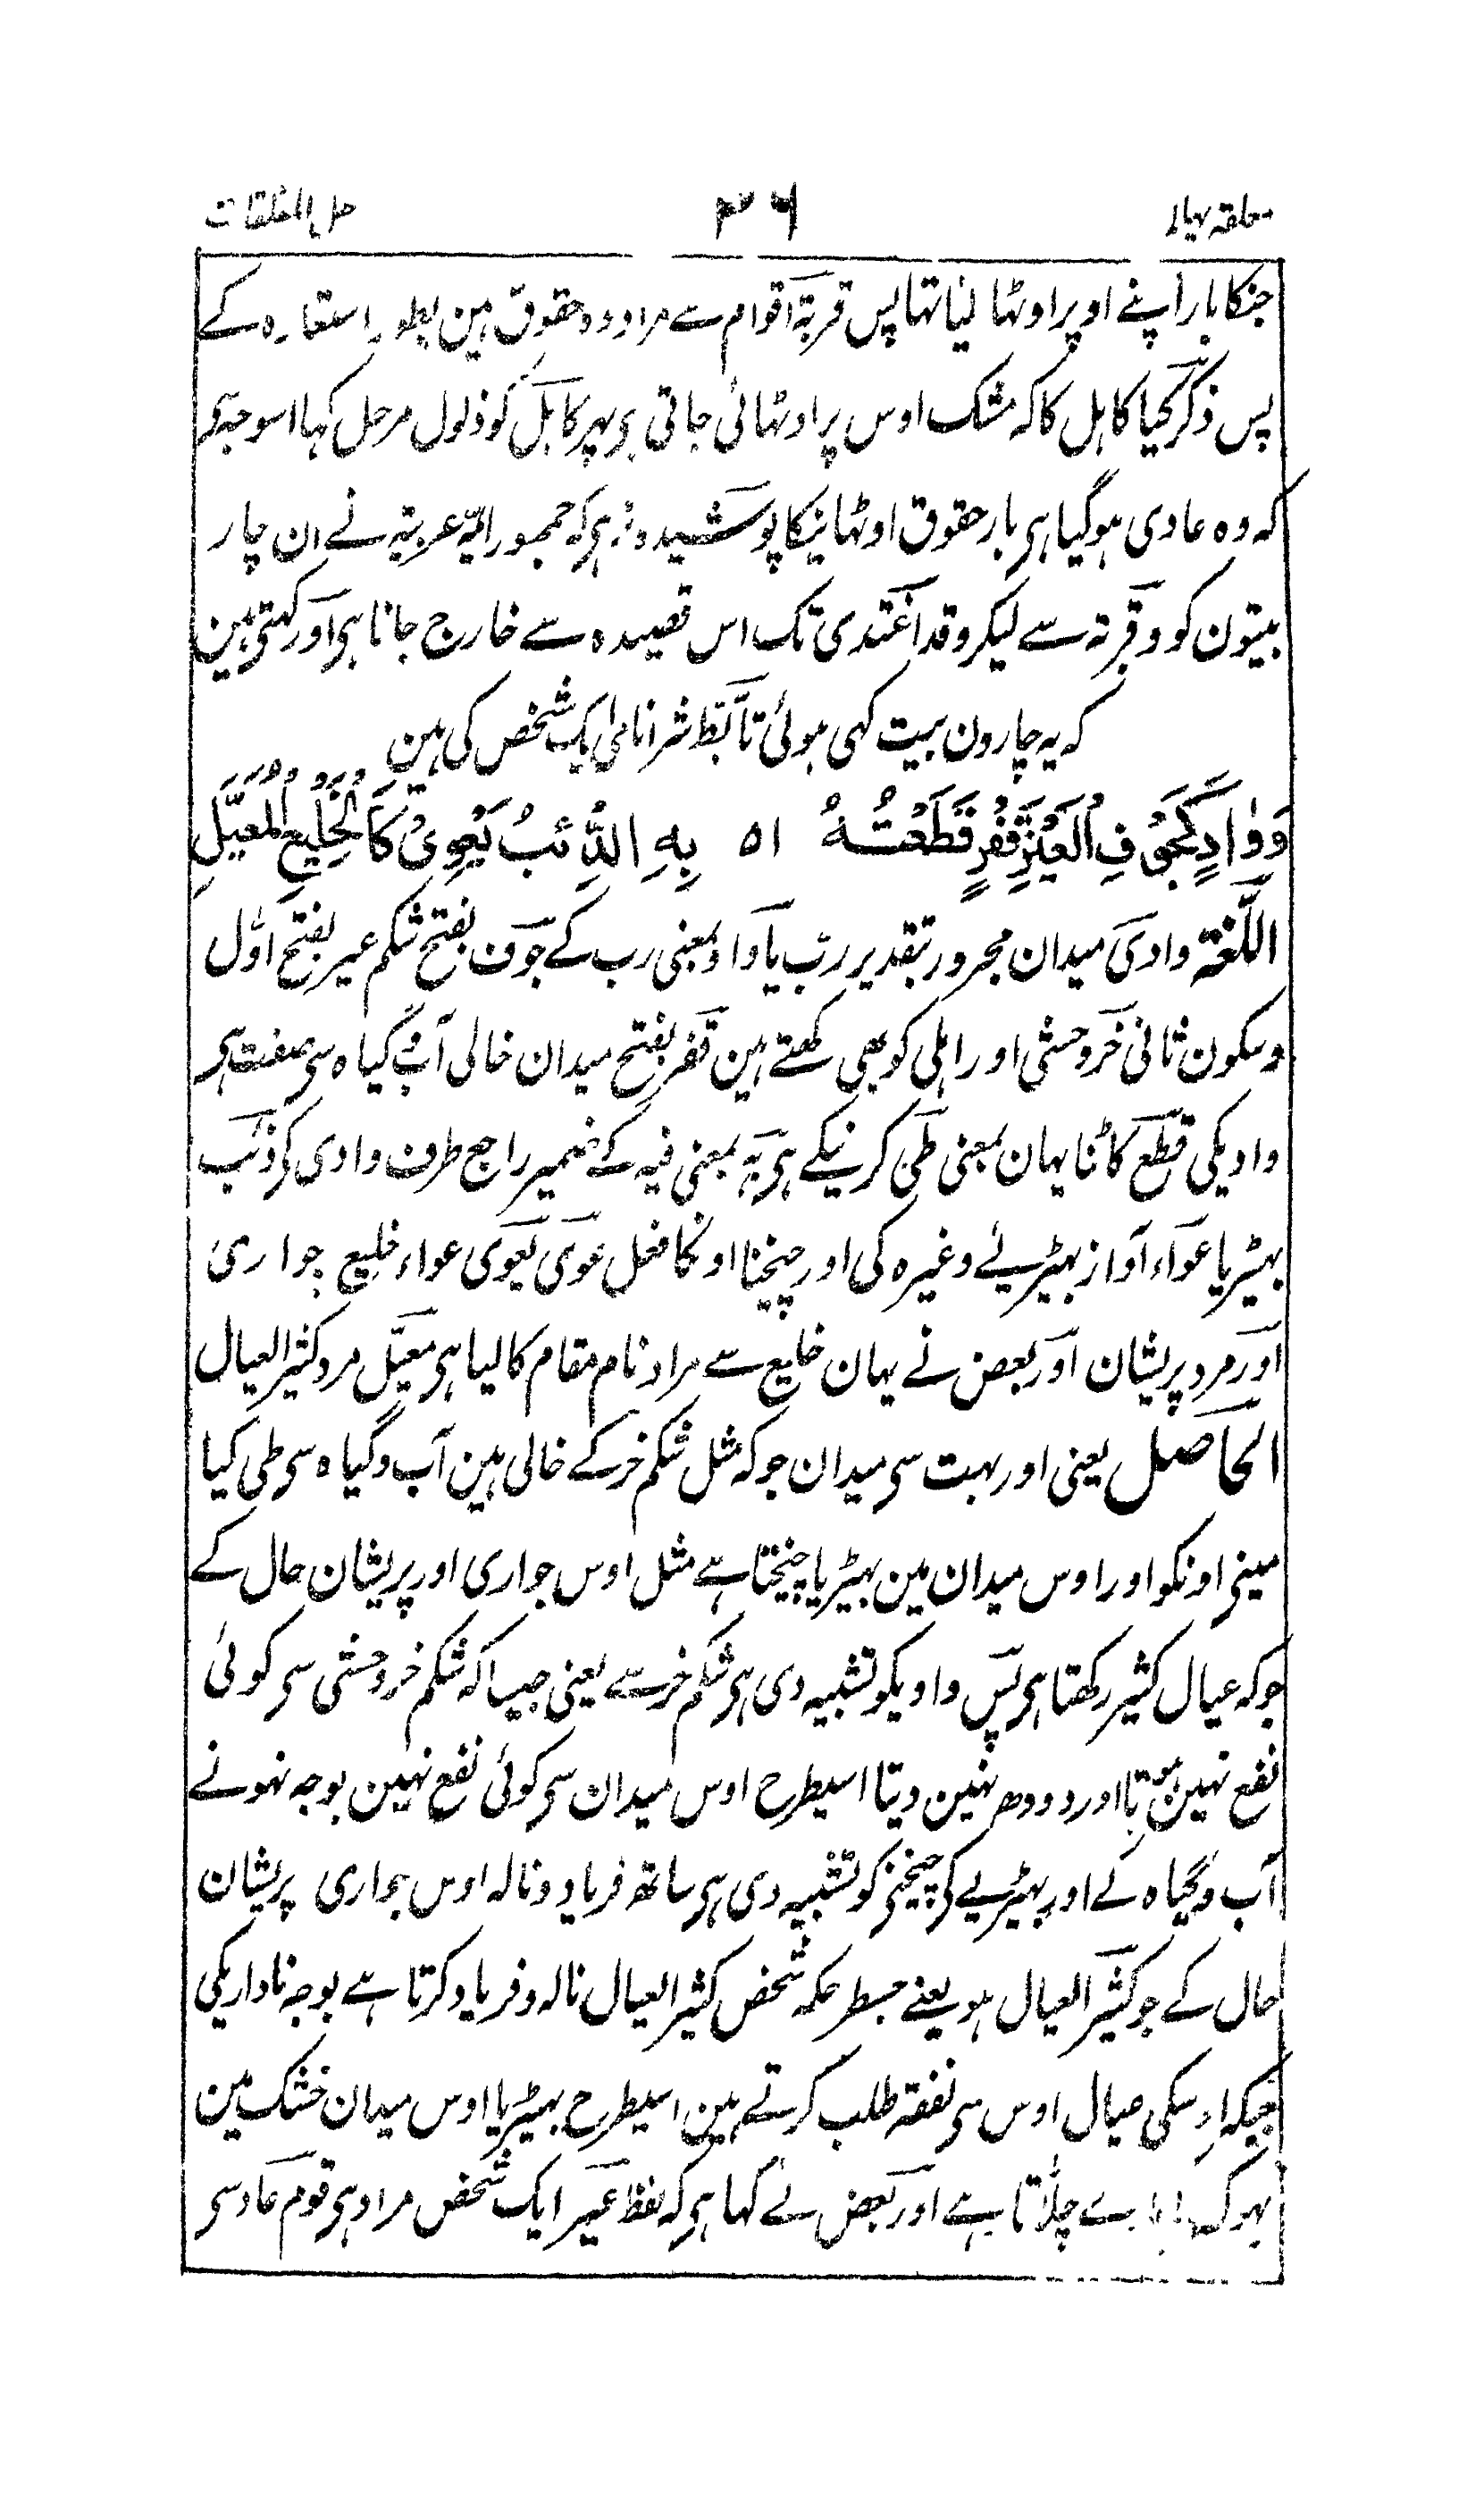 معلقہ پہلا ۳۶ حل المعلقات
جنکا بار اپنے اوپر اوٹھا لیا تھا پس قربۃ اقوام سے مراد وہ حقوق ہین بطور استعارہ کے
پس ذکر کیا کاہل کا کہ مشک اوس پر اوٹھائی جاتی ہی پہر کاہل کو ذلول مرحل کہا اسوجہ
کہ وہ عادی ہوگیا ہی بار حقوق اوٹھانیکا پوشیدہ نرہی کہ جمہور ایمۂ عربیۃ نے ان چار
بیتون کو وقربۃ سے لیکر وقد اغتدی تک اس قصیدہ سے خارج جانا ہی اور کہتی ہین
کہ یہ چارون بیت کہی ہوئی تأبط شرا نامی ایک شخص کی ہین
وَوَادٍ كَجَوْفِ الْعَيْرِ قَفْرٍ قَطَعْتُهُ ۵۱ بِهِ الذِّئْبُ يَعْوِيْ كَالْخَلِيْعِ الْمُعَيَّلِ
اللغۃ وادی میدان مجرور بتقدیر رب یا واو بمعنی رب کے جوف بفتح شکم عیر بفتح اول
وسکون ثانی خر وحشی اور اہلی کو بھی کہتے ہین قفر بفتح میدان خالی آب و گیاہ سی صفت ہی
وادیکی قطع کاٹنا یہان بمعنی طی کرنیکے ہی بہ بمعنی فیہ کے ضمیر راجع طرف وادی کی ذئب
بہیڑیا عواء آواز بہیڑیے وغیرہ کی اور چیخنا اونکا فعل عوی یعوی عواء خلیع جواری
اور مرد پریشان اور بعض نے یہان خلیع سے مراد نام مقام کا لیا ہی معیل مرد کثیر العیال
الحاصل یعنی اور بہت سی میدان جو کہ مثل شکم خر کے خالی ہین آب و گیاہ سی طی کیا
مینی اونکو اور اوس میدان مین بہیڑیا چیختا ہے مثل اوس جواری اور پریشان حال کے
جو کہ عیال کثیر رکھتا ہی پس وادیکو تشبیہ دی ہی شکم خر سے یعنی جیسا کہ شکم خر وحشی سی کوئی
نفع نہین ہوتا اور دودھ نہین دیتا اسیطرح اوس میدان سی کوئی نفع نہین بوجہ نہونے
آب و گیاہ کے اور بہیڑیے کی چیخنی کو تشبیہ دی ہی ساتھ فریاد و نالہ اوس جواری پریشان
حال کے جو کثیر العیال ہو یعنے جسطرحکہ شخص کثیر العیال نالہ و فریاد کرتا ہے بوجہ ناداریکی
جبکہ اوسکی عیال اوس سی نفقہ طلب کرتے ہین اسیطرح بہیڑیا اوس میدان خشک مین
بہوک سے چلاتا ہے اور بعض نے کہا ہی کہ لفظ عیر ایک شخص مراد ہی قوم عاد سی